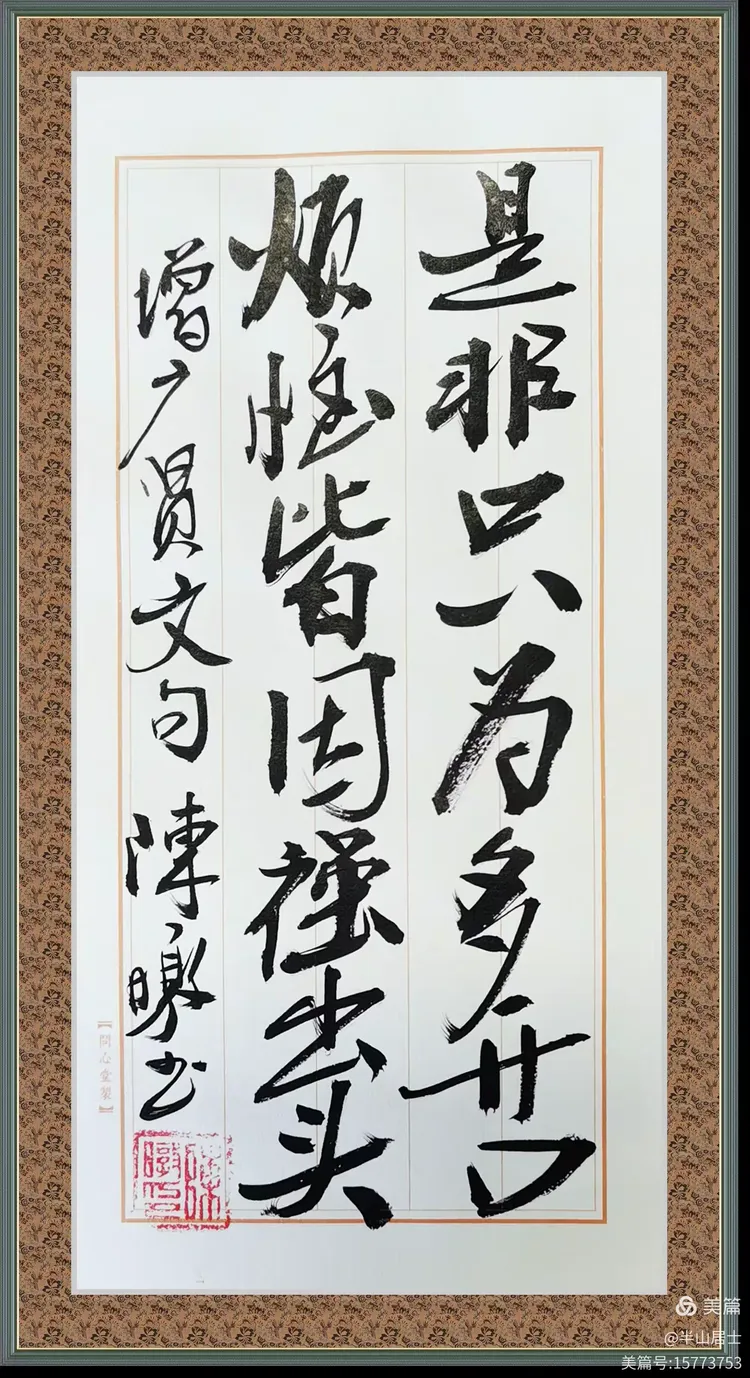 是非只为多开口
烦恼皆因强出头
增广贤文句 陳暾书
美篇
@半山居士
美篇号:15773753